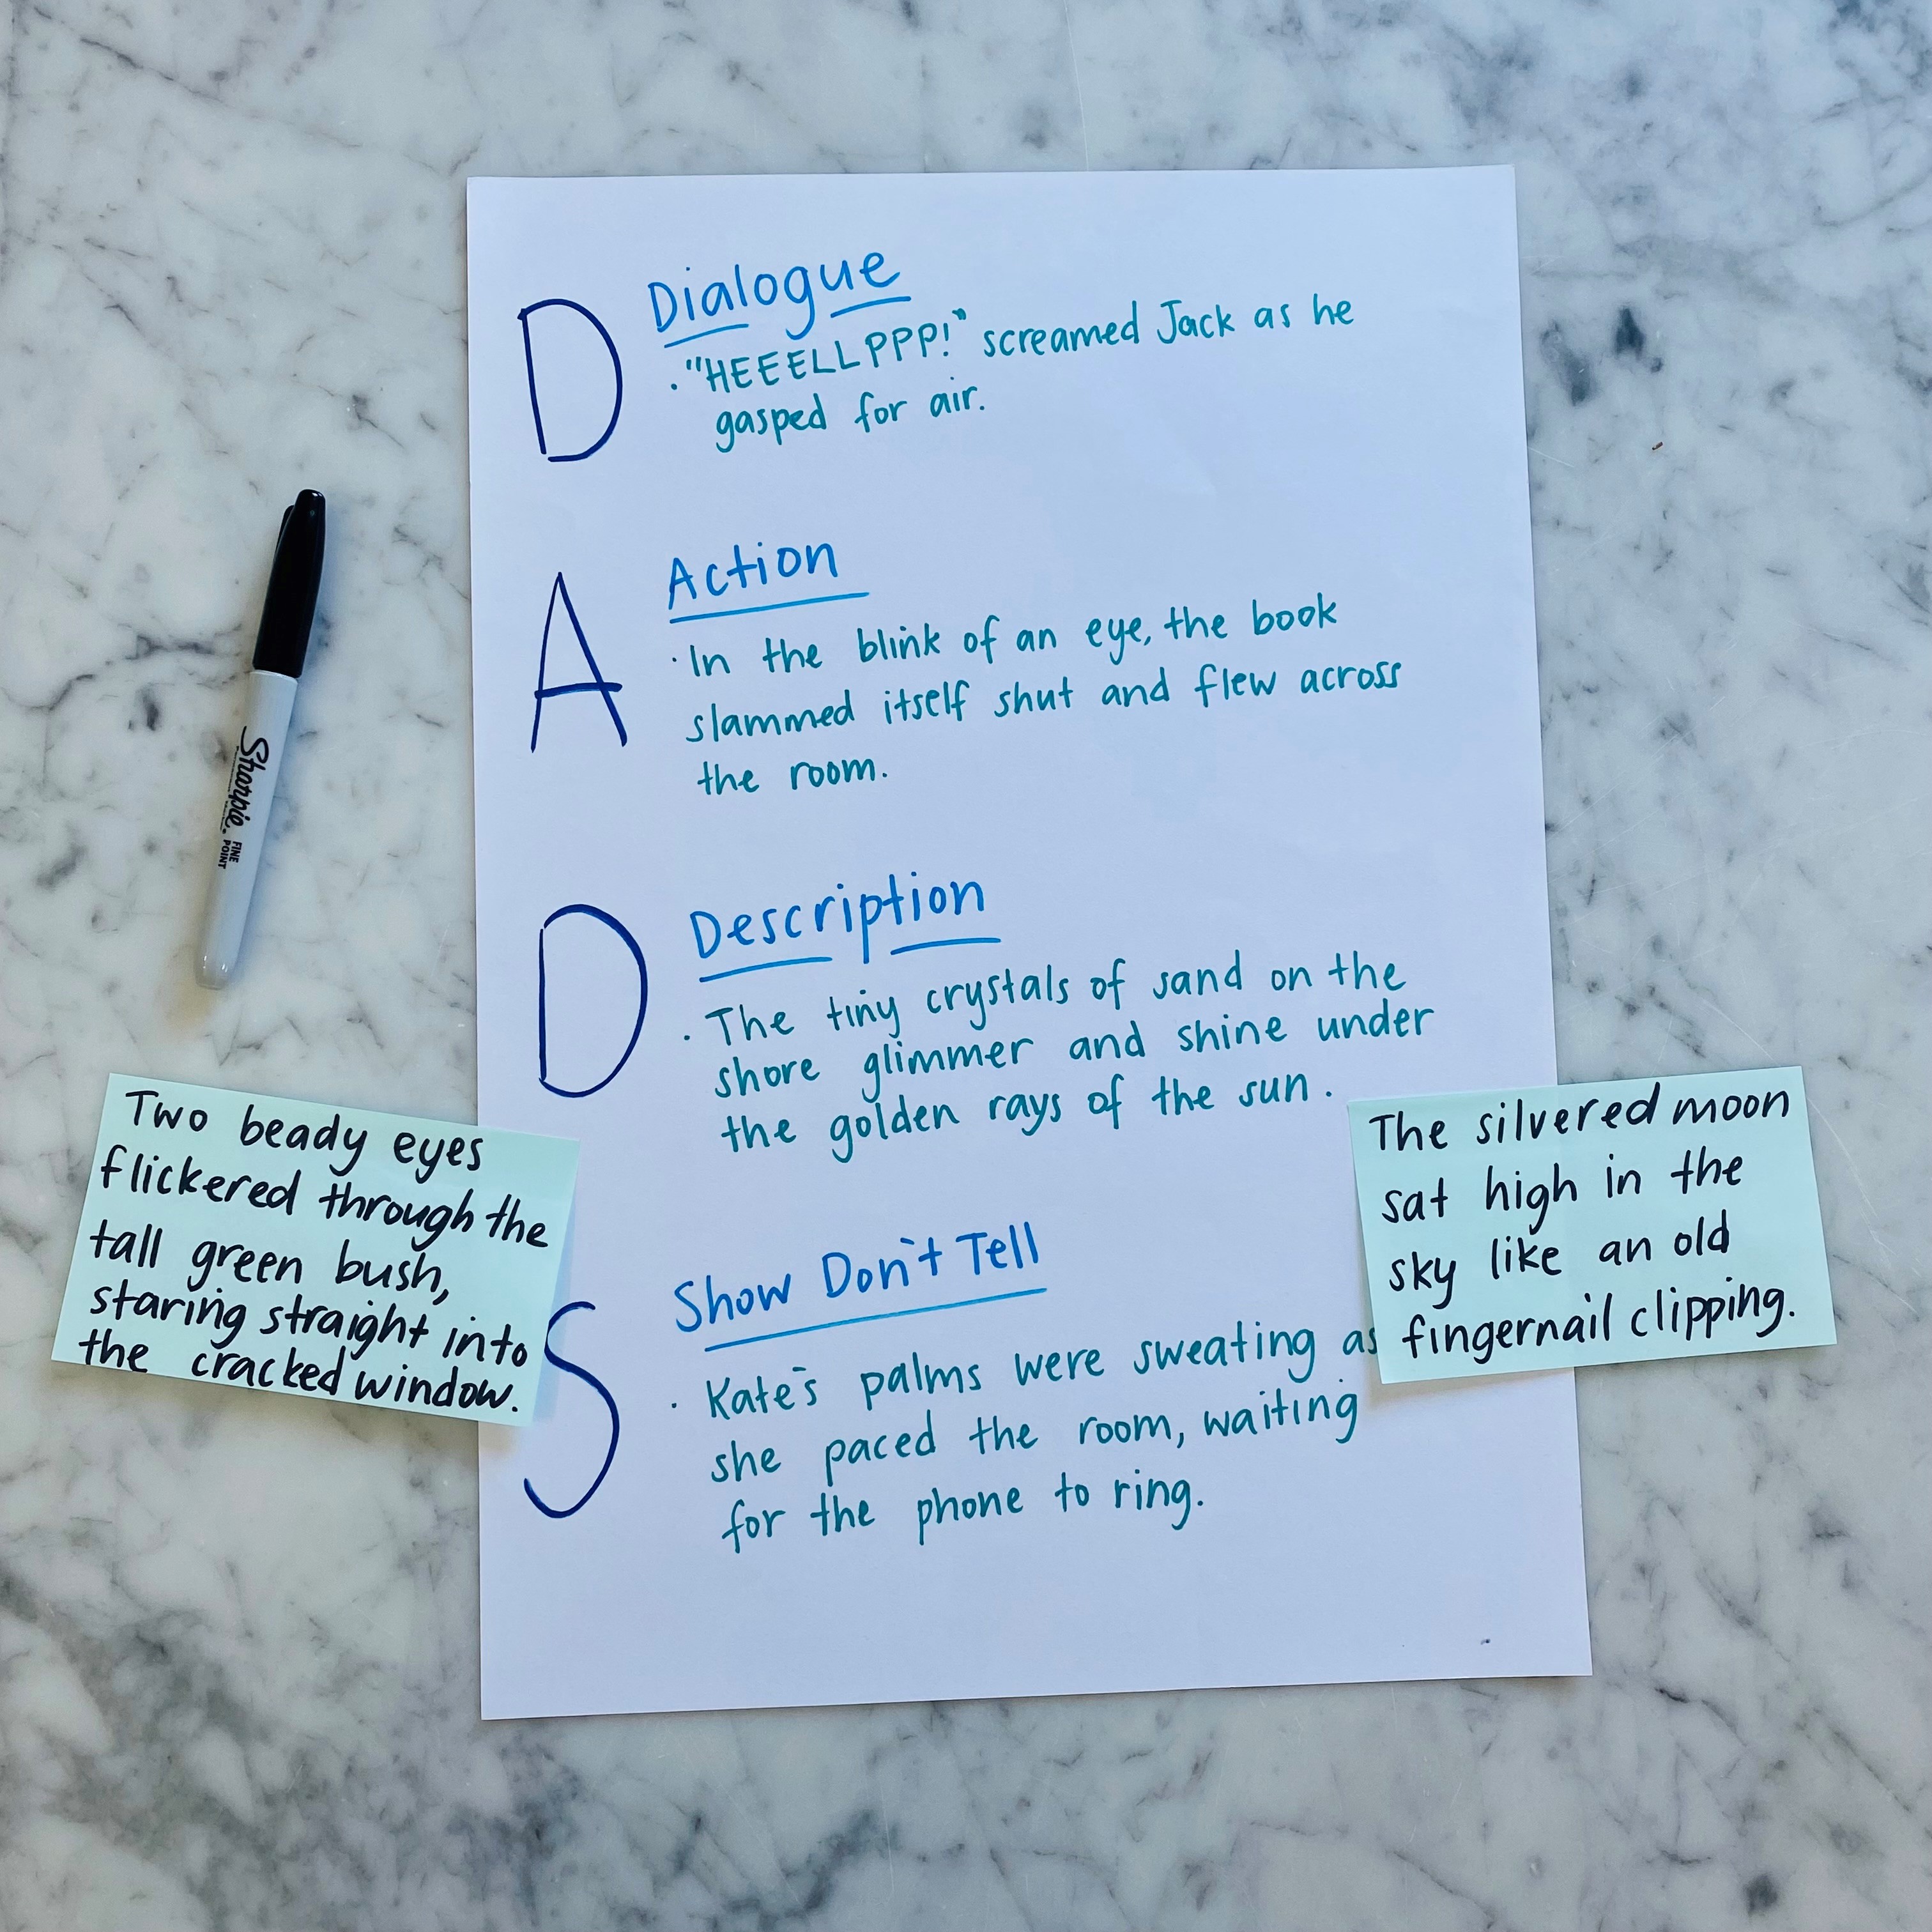 D
Dialogue
· "HEEELLPPP!" screamed Jack as he
gasped for air.
A
Action
· In the blink of an eye, the book
slammed itself shut and flew across
the room.
D
Description
· The tiny crystals of sand on the
shore glimmer and shine under
the golden rays of the sun.
S
Show Don't Tell
· Kate's palms were sweating as
she paced the room, waiting
for the phone to ring.
Two beady eyes
flickered through the
tall green bush,
staring straight into
the cracked window.
The silvered moon
sat high in the
sky like an old
fingernail clipping.
Sharpie.
FINE
POINT